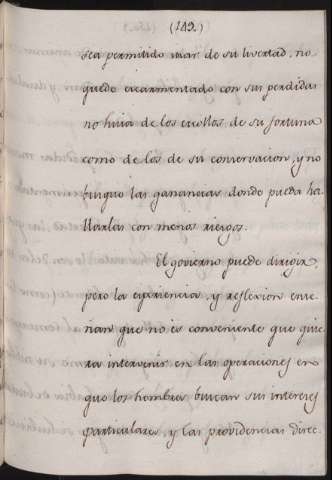 (149.)
sea permitido usar de su livertad, no
quede escarmentado con sus perdidas
no huia de los escollos de su fortuna
como de los de su conservacion, y no
busque las ganancias donde pueda ha
llarlas con menos riesgos.
El govierno puede dirigir,
pero la esperiencia, y reflexion ense
ñan que no es conveniente que quie
ra intervenir en las operaciones en
que los hombres buscan sus interes
particulares, y las providencias direc